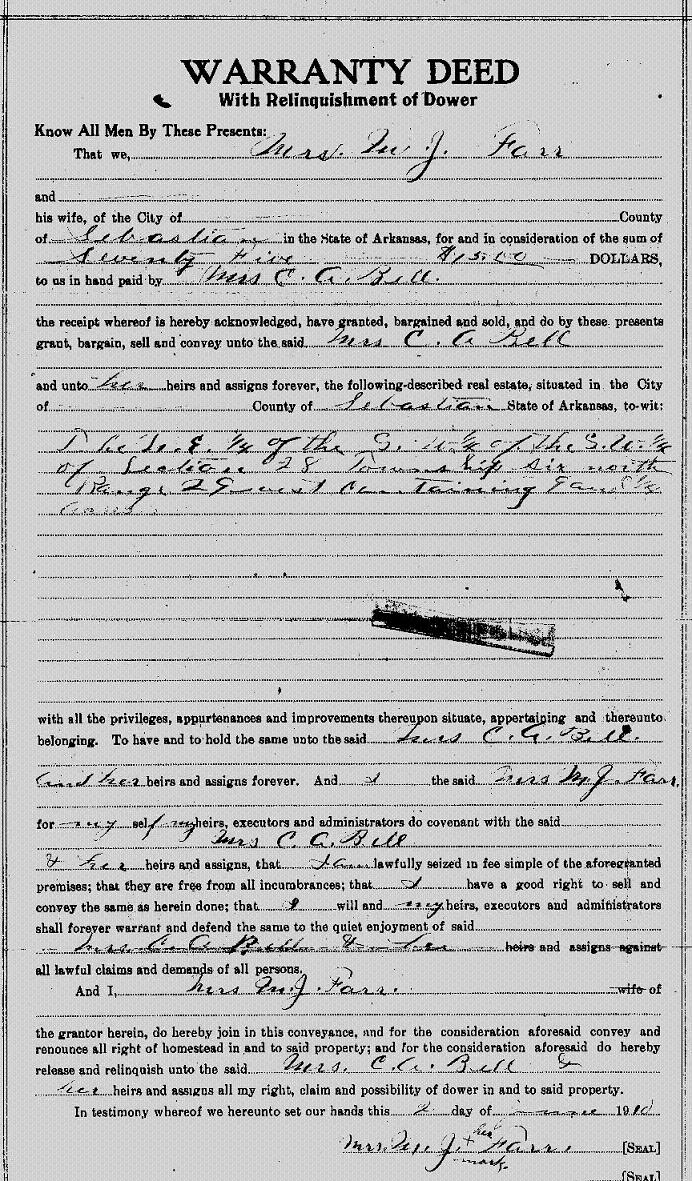 WARRANTY DEED
With Relinquishment of Dower
Know All Men By These Presents:
That we, Mrs. M. J. Farr
and
his wife, of the City of County
of Sebastian in the State of Arkansas, for and in consideration of the sum of
Seventy Five DOLLARS,
to us in hand paid by Mrs C. A. Bell.
the receipt whereof is hereby acknowledged, have granted, bargained and sold, and do by these presents
grant, bargain, sell and convey unto the said Mrs C. A Bell
and unto her heirs and assigns forever, the following-described real estate, situated in the City
of County of Sebastian State of Arkansas, to-wit:
The N. E. 1/4 of the S. W 1/4 of the S. W. 1/4
of Section 28 Township six north
Range 29 west containing
acres
with all the privileges, appurtenances and improvements thereupon situate, appertaining and thereunto
belonging. To have and to hold the same unto the said Mrs C. A. Bell.
and her heirs and assigns forever. And I the said Mrs M. J. Farr,
for my self my heirs, executors and administrators do covenant with the said
Mrs C. A. Bell
& her heirs and assigns, that I am lawfully seized in fee simple of the aforegranted
premises; that they are free from all incumbrances; that I have a good right to sell and
convey the same as herein done; that I will and my heirs, executors and administrators
shall forever warrant and defend the same to the quiet enjoyment of said
Mrs C. A Bell & her heirs and assigns against
all lawful claims and demands of all persons.
And I, Mrs M. J. Farr. wife of
the grantor herein, do hereby join in this conveyance, and for the consideration aforesaid convey and
renounce all right of homestead in and to said property; and for the consideration aforesaid do hereby
release and relinquish unto the said Mrs. C. A. Bell &
her heirs and assigns all my right, claim and possibility of dower in and to said property.
In testimony whereof we hereunto set our hands this 2 day of June 1910
her
Mrs. M. J. + Farr. [SEAL]
mark
[SEAL]